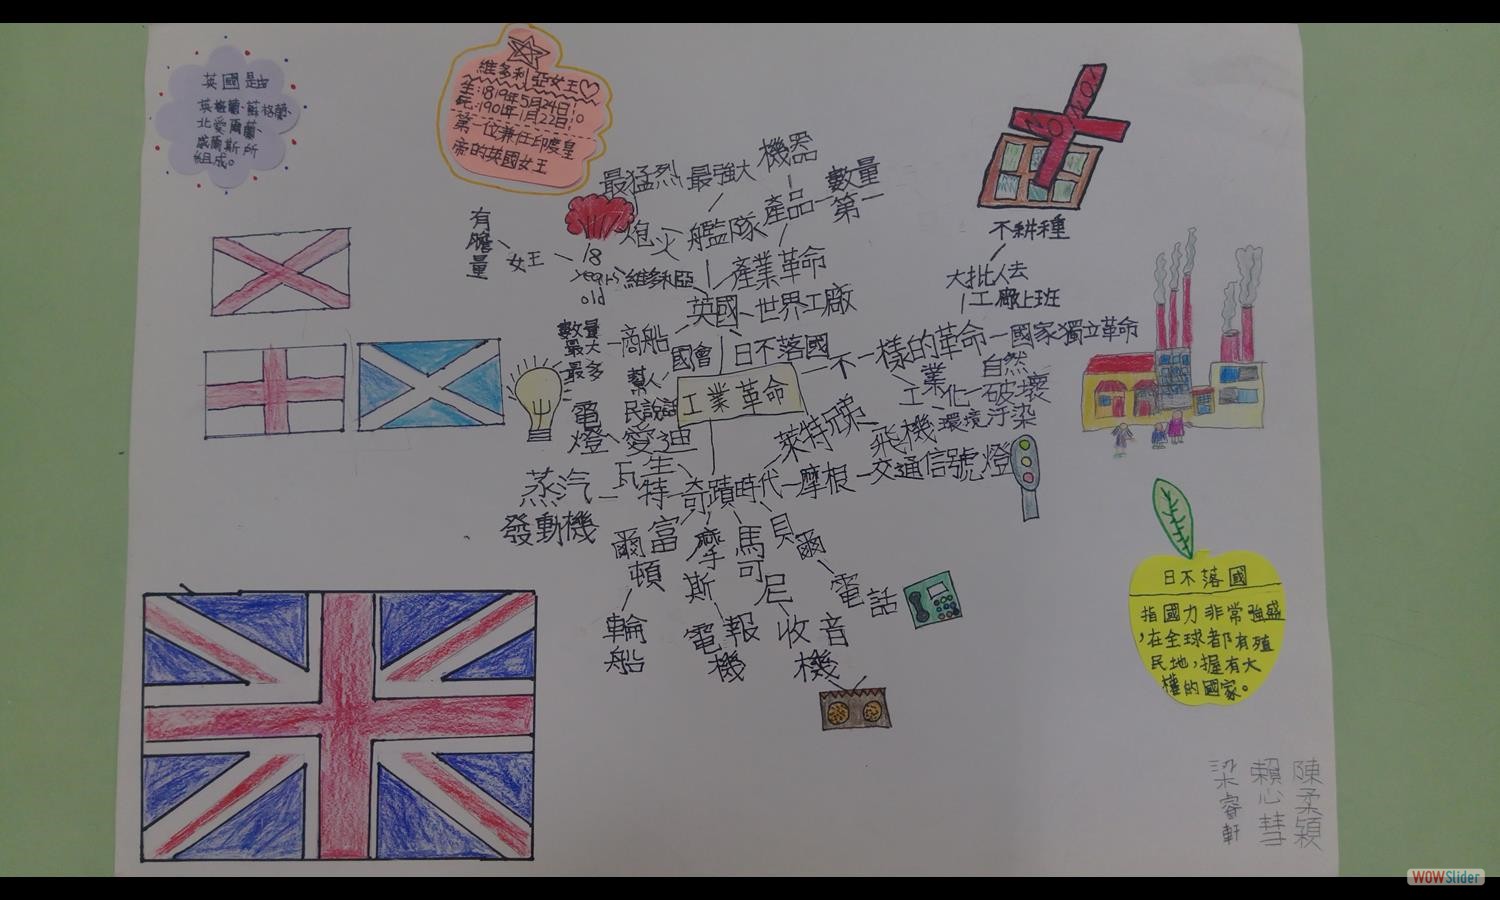 英國是由
英格蘭、蘇格蘭、
北愛爾蘭、
威爾斯所
組成。
維多利亞女王
生:1819年5月24日
死:1901年1月22日
第一位兼任印度皇
帝的英國女王
最猛烈
最強大
機器
炮火
艦隊
產品
數量
第一
有
膽
量
女王
18
years
old
維多利亞
產業革命
英國
世界工廠
數量
最大
最多
商船
國會
日不落國
幫人
民說話
工業革命
不一樣的革命
國家獨立革命
不耕種
大批人去
工廠上班
工業化
自然
破壞
環境汙染
電
燈
愛迪
生
萊特兄弟
飛機
蒸汽
發動機
瓦
特
奇蹟時代
摩根
交通信號燈
富
爾
頓
輪
船
摩
斯
電報
機
馬
可
尼
收音
機
貝
爾
電話
日不落國
指國力非常強盛
,在全球都有殖
民地,握有大
權的國家。
陳柔穎
賴心彗
梁睿軒
WOWSlider